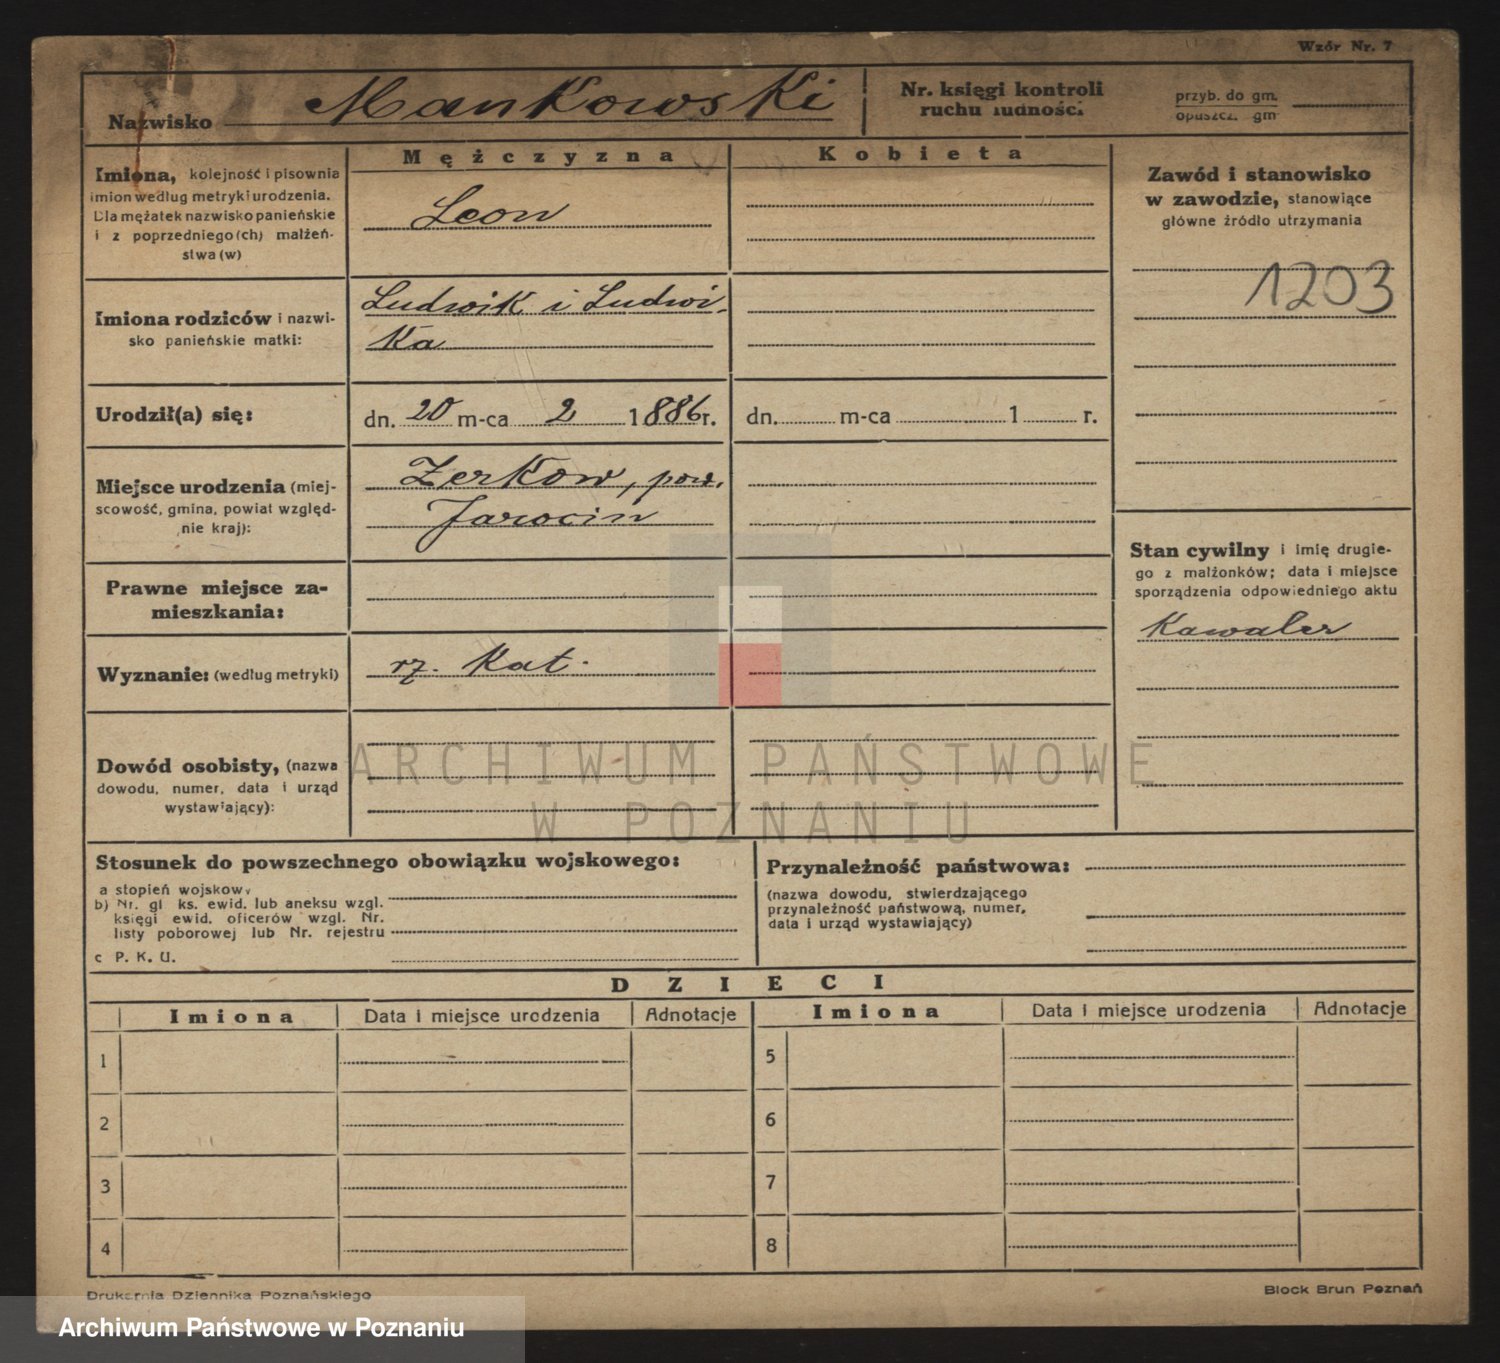 Wzór Nr. 7
Nazwisko Mankowski
Nr. księgi kontroli
ruchu ludności
przyb. do gm.
opuszcz. gm
Imiona, kolejność i pisownia
imion według metryki urodzenia.
Dla mężatek nazwisko panieńskie
i z poprzedniego (ch) małżeń-
stwa (w)
Mężczyzna
Kobieta
Leon
Zawód i stanowisko
w zawodzie, stanowiące
główne źródło utrzymania
1203
Imiona rodziców i nazwi-
sko panieńskie matki:
Ludwik i Ludwi
ka
Urodził(a) się:
dn. 20 m-ca 2 1886 r.
dn. m-ca 1 r.
Miejsce urodzenia (miej-
scowość, gmina, powiat względ-
nie kraj):
Zerkow, pow.
Jarocin
Stan cywilny i imię drugie-
go z małżonków; data i miejsce
sporządzenia odpowiedniego aktu
Kawaler
Prawne miejsce za-
mieszkania:
Wyznanie: (według metryki)
rz. kat.
Dowód osobisty, (nazwa
dowodu, numer, data i urząd
wystawiający):
ARCHIWUM PAŃSTWOWE
W POZNANIU
Stosunek do powszechnego obowiązku wojskowego:
a stopień wojskowy
b) Nr. gł ks. ewid. lub aneksu wzgl.
księgi ewid. oficerów wzgl. Nr.
listy poborowej lub Nr. rejestru
c P. K. U.
Przynależność państwowa:
(nazwa dowodu, stwierdzającego
przynależność państwową, numer,
data i urząd wystawiający)
DZIECI
Imiona Data i miejsce urodzenia Adnotacje Imiona Data i miejsce urodzenia Adnotacje
1 5
2 6
3 7
4 8
Drukarnia Dziennika Poznańskiego
Block Brun Poznań
Archiwum Państwowe w Poznaniu